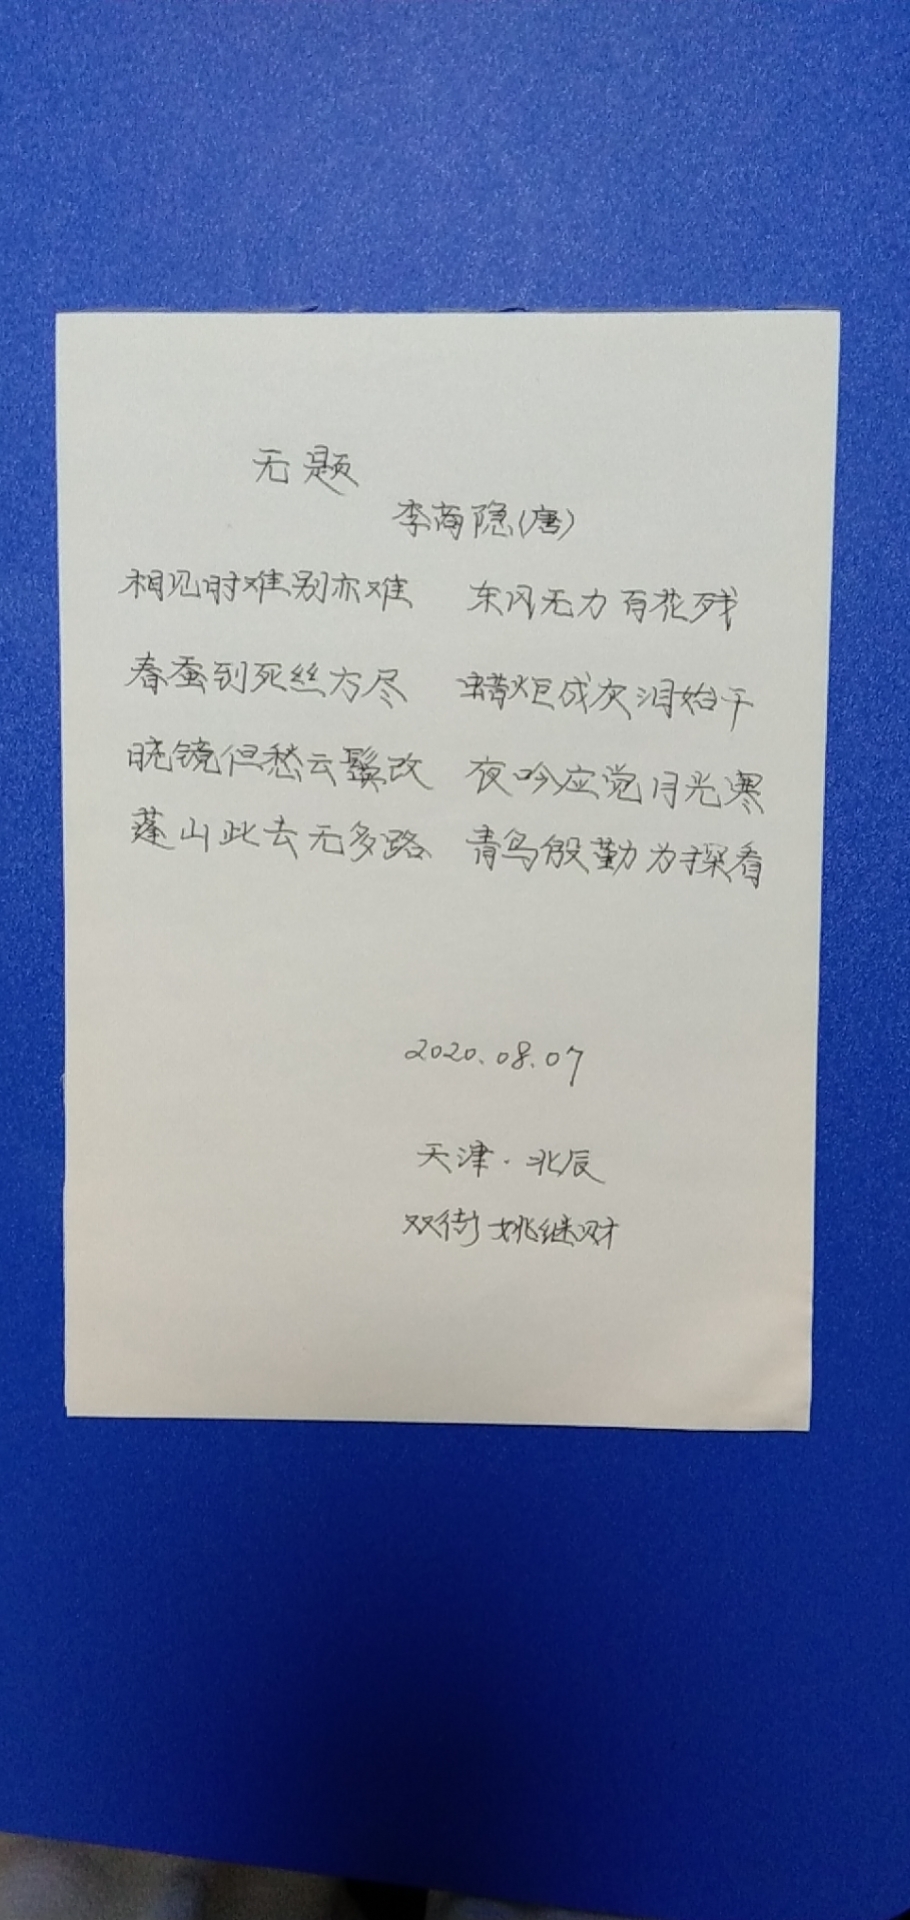 无题
李商隐(唐)
相见时难别亦难 东风无力百花残
春蚕到死丝方尽 蜡炬成灰泪始干
晓镜但愁云鬓改 夜吟应觉月光寒
蓬山此去无多路 青鸟殷勤为探看
2020.08.07
天津·北辰
双街姚继财